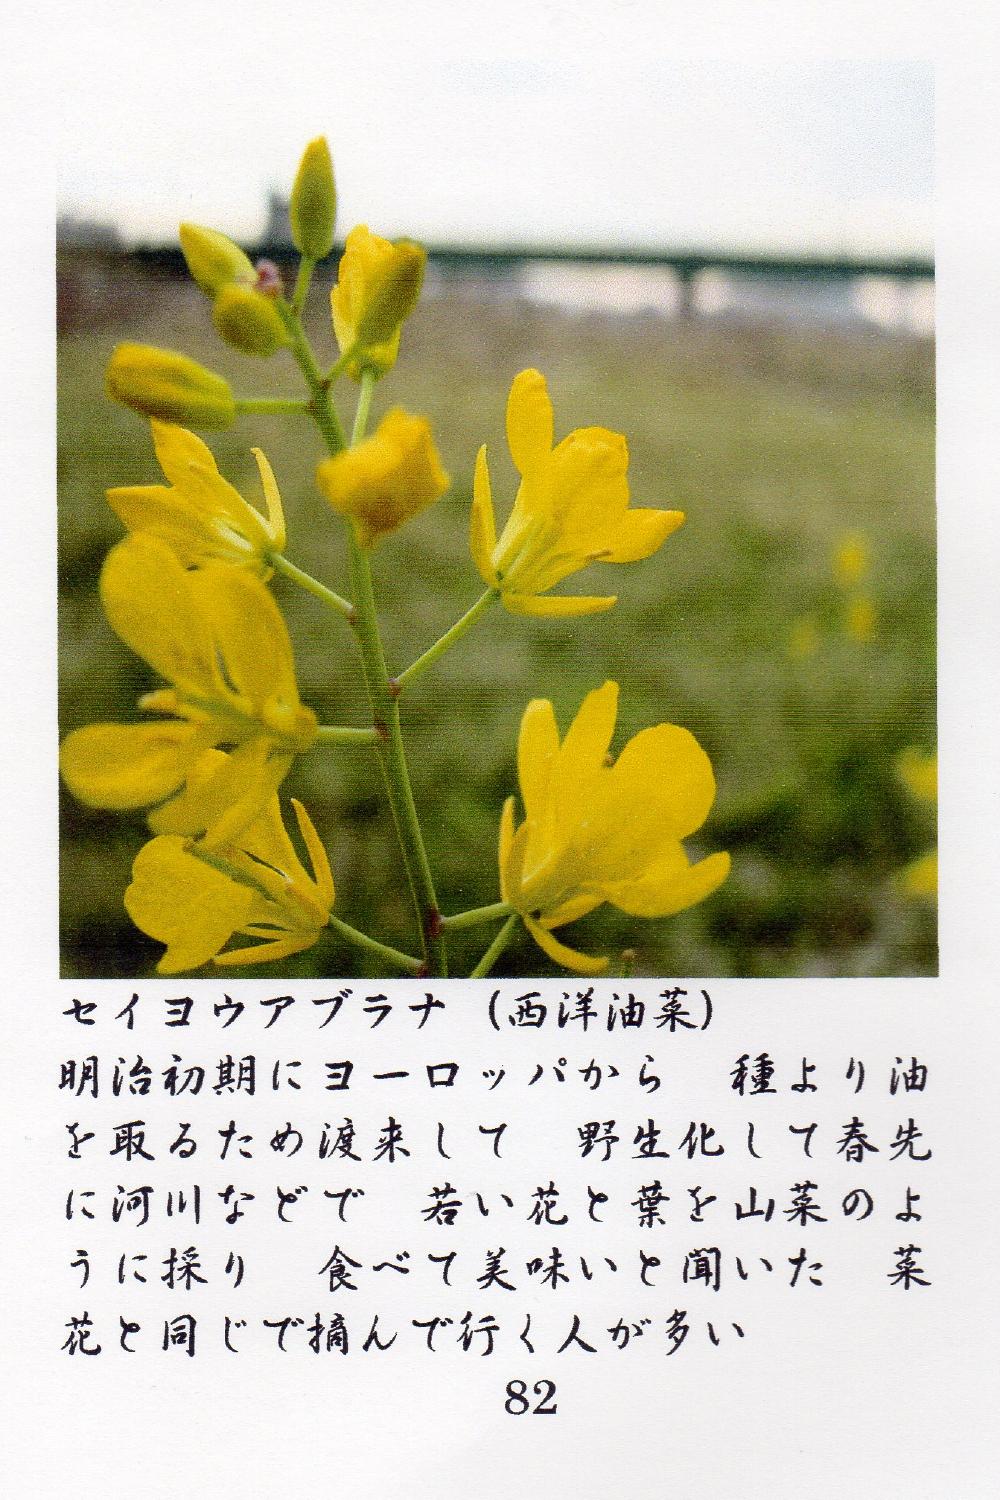 セイヨウアブラナ（西洋油菜）
明治初期にヨーロッパから　種より油
を取るため渡来して　野生化して春先
に河川などで　若い花と葉を山菜のよ
うに採り　食べて美味いと聞いた　菜
花と同じで摘んで行く人が多い
82